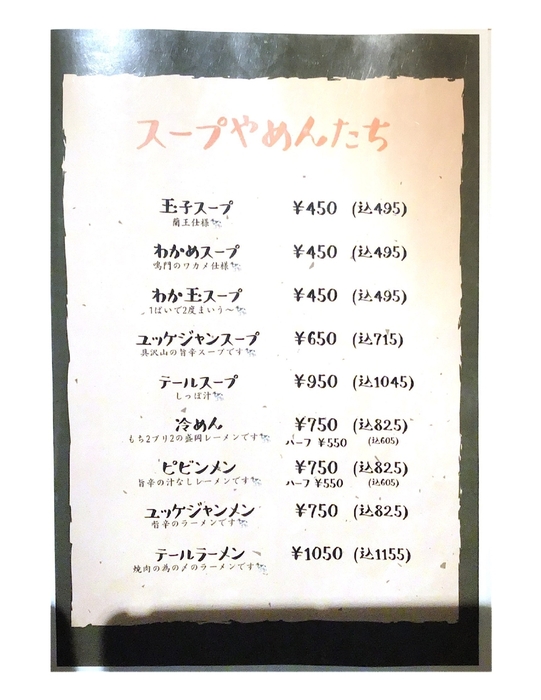 スープやめんたち
玉子スープ ¥450 (込495)
蘭王仕様
わかめスープ ¥450 (込495)
鳴門のワカメ仕様
わか玉スープ ¥450 (込495)
1ぱいで2度まいう〜
ユッケジャンスープ ¥650 (込715)
具沢山の旨辛スープです
テールスープ ¥950 (込1045)
しっぽ汁
冷めん ¥750 (込825)
もち2プリ2の盛岡レーメンです ハーフ ¥550 (込605)
ピビンメン ¥750 (込825)
旨辛の汁なしレーメンです ハーフ ¥550 (込605)
ユッケジャンメン ¥750 (込825)
旨辛のラーメンです
テールラーメン ¥1050 (込1155)
焼肉の為の〆のラーメンです